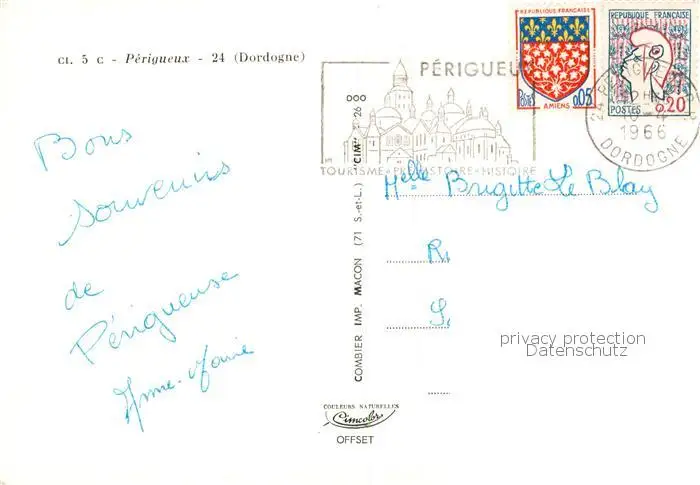 CI. 5 C - Périgueux - 24 (Dordogne)
Bons
souvenirs
de
Périgueuse
Anne-Marie
COMBIER IMP. MACON (71 S.-et-L.) "CIM" 26 000
COULEURS NATURELLES
Cimcolor
OFFSET
PÉRIGUEU
TOURISME-PRÉHISTOIRE-HISTOIRE
REPUBLIQUE FRANÇAISE
Postes 0,05
AMIENS
REPUBLIQUE FRANÇAISE
POSTES 0,20
1966
DORDOGNE
Melle Brigitte Le Blay
R
S
privacy protection
Datenschutz